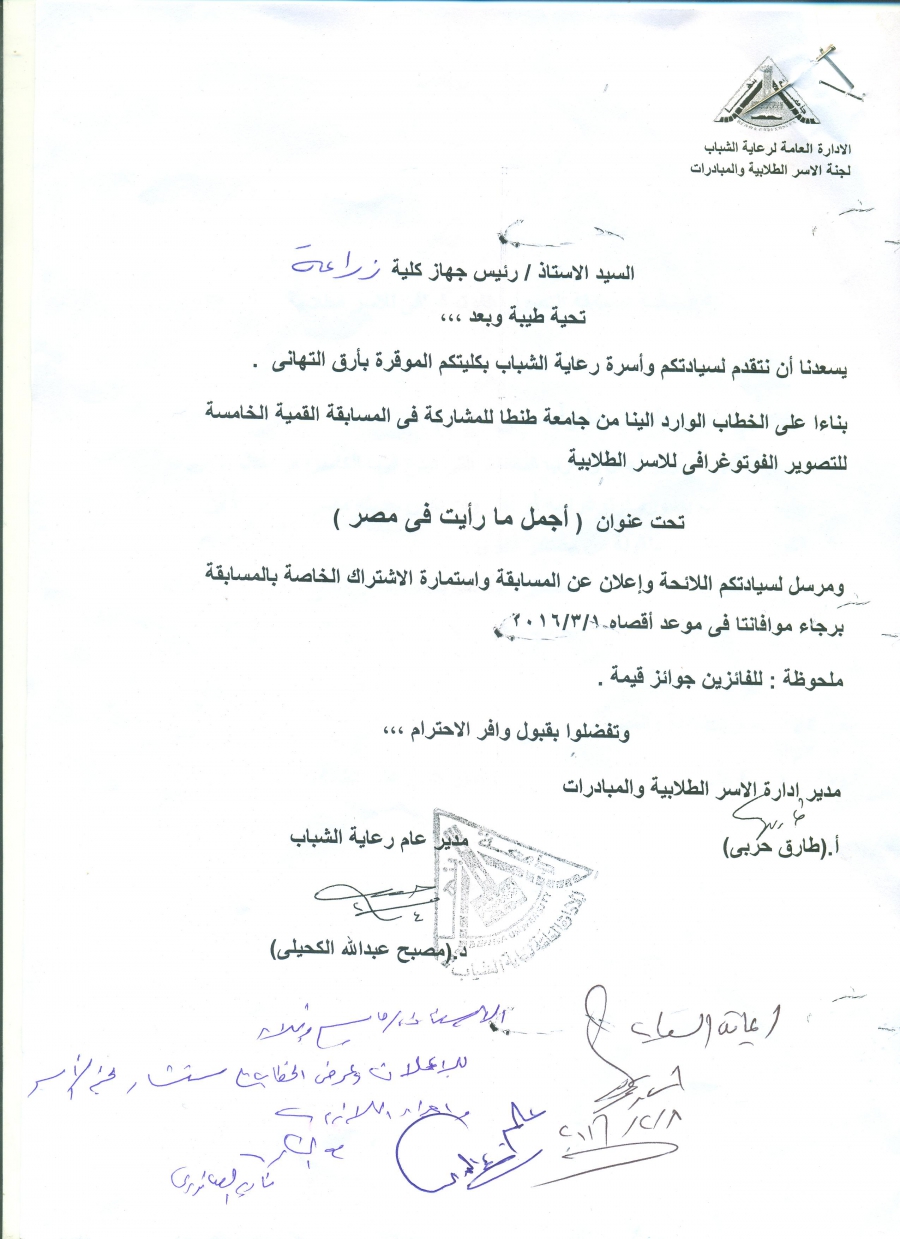 الادارة العامة لرعاية الشباب
لجنة الاسر الطلابية والمبادرات
السيد الاستاذ / رئيس جهاز كلية زراعة
تحية طيبة وبعد ،،،
يسعدنا أن نتقدم لسيادتكم وأسرة رعاية الشباب بكليتكم الموقرة بأرق التهانى .
بناءا على الخطاب الوارد الينا من جامعة طنطا للمشاركة فى المسابقة القمية الخامسة
للتصوير الفوتوغرافى للاسر الطلابية
تحت عنوان ( أجمل ما رأيت فى مصر )
ومرسل لسيادتكم اللائحة وإعلان عن المسابقة واستمارة الاشتراك الخاصة بالمسابقة
برجاء موافاتنا فى موعد أقصاه ٢٠١٦/٣/١
ملحوظة : للفائزين جوائز قيمة .
وتفضلوا بقبول وافر الاحترام ،،،
مدير إدارة الاسر الطلابية والمبادرات
أ.(طارق حربى)
مدير عام رعاية الشباب
د.(مصبح عبدالله الكحيلى)
رعاية الشباب
٢٠١٦/٢/٨
للإعلان وعرض الخطاب مستشار لجنة الأسر
مع الشكر